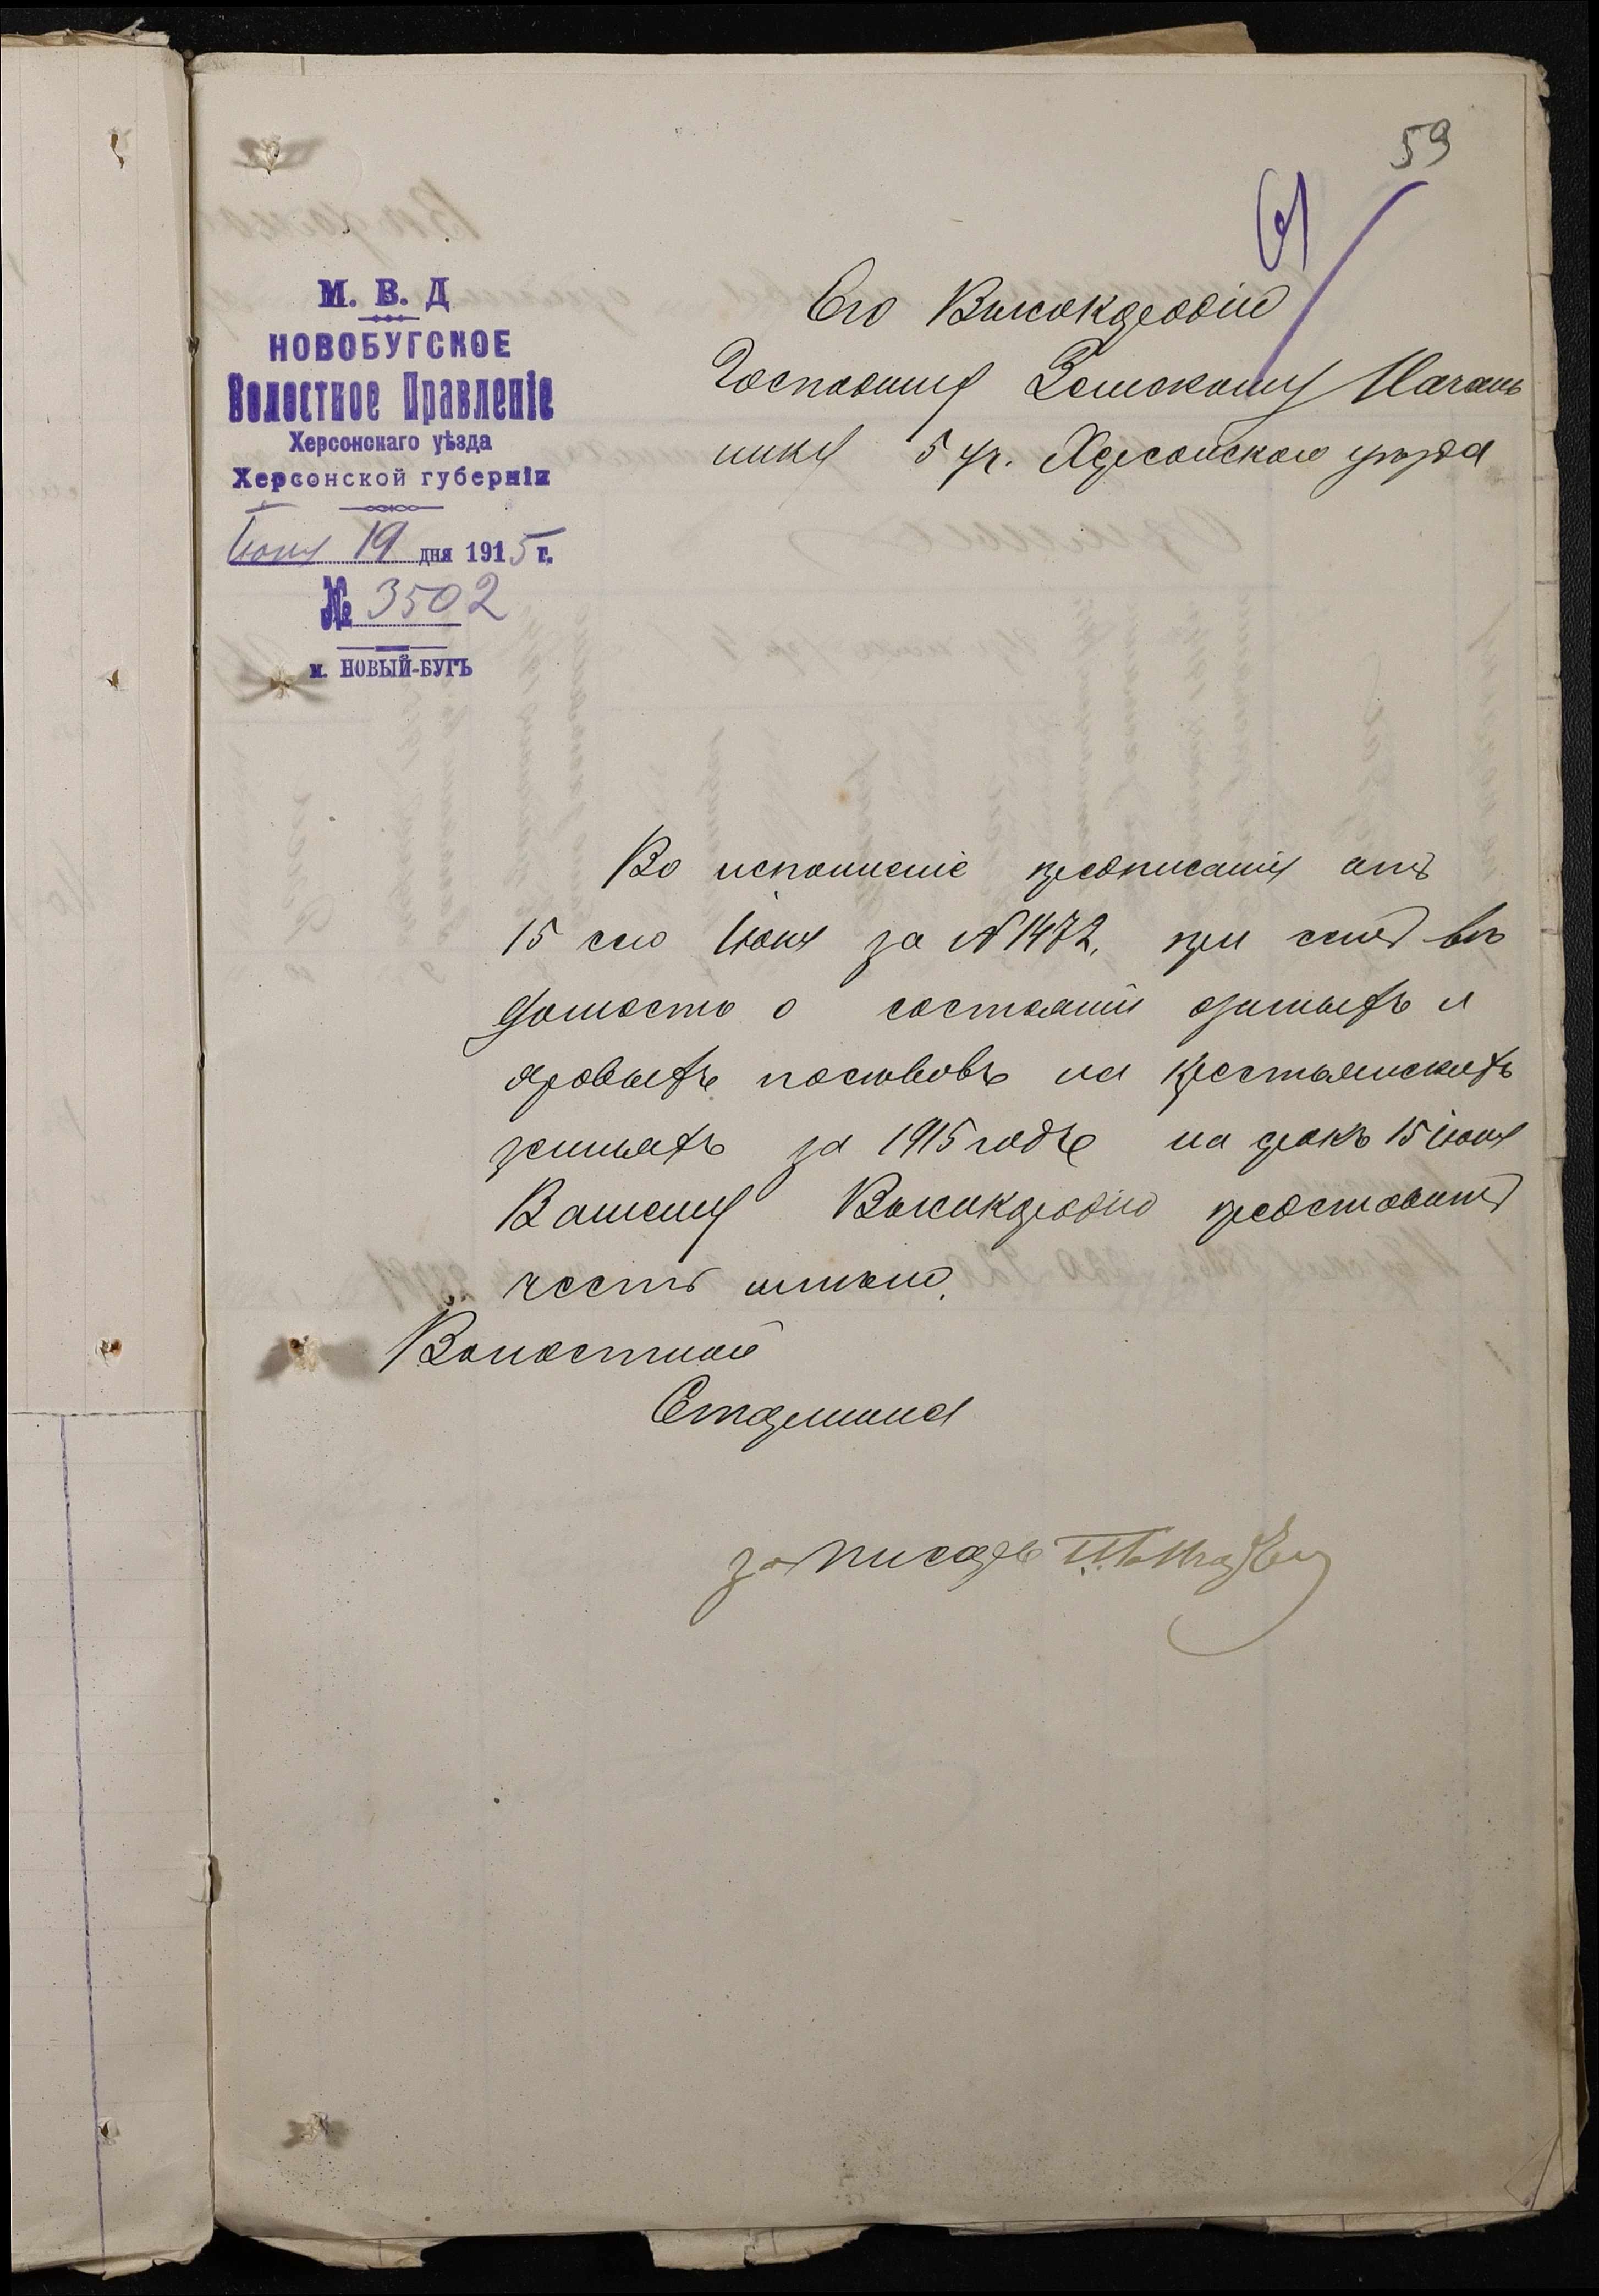 59
61
М. В. Д
НОВОБУГСКОЕ
Волостное Правленіе
Херсонскаго уѣзда
Херсонской губерніи
Іюня 19 дня 1915 г.
№ 3502
м. НОВЫЙ-БУГЪ
Его Высокородію
Господину Земскому Началь
нику 5 уч. Херсонскаго уѣзда
Во исполненіе предписанія отъ
15 сего Іюня за № 1472, при семъ вѣ
домость о состояніи озимыхъ и
яровыхъ посѣвовъ на крестьянскихъ
земляхъ за 1915 годъ на срокъ 15 іюня
Вашему Высокородію представить
честь имѣю.
Волостной
Старшина
за писаря